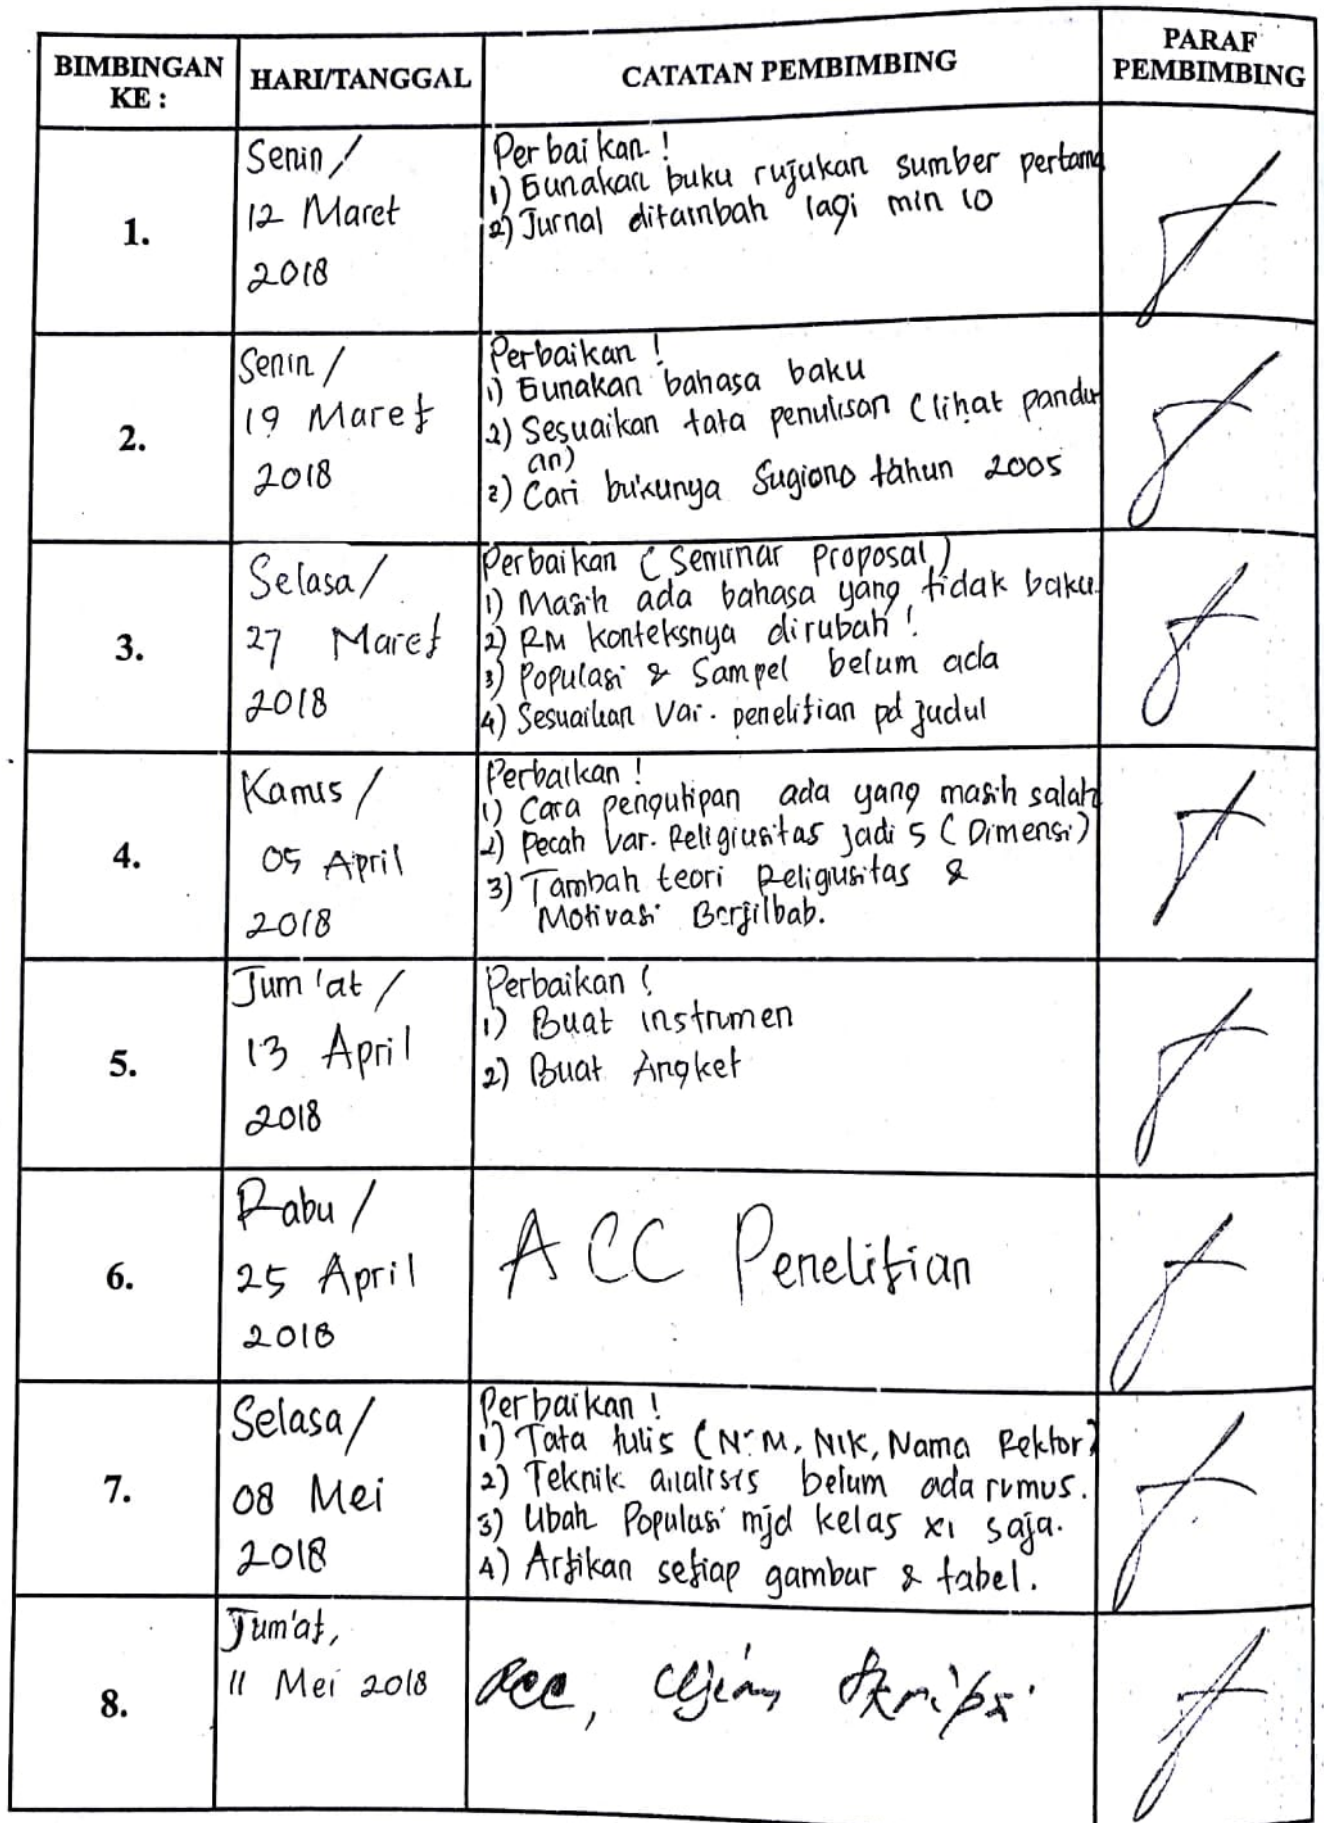 BIMBINGAN KE :
HARI/TANGGAL
CATATAN PEMBIMBING
PARAF PEMBIMBING
1.
Senin /
12 Maret
2018
Perbaikan !
1) Gunakan buku rujukan sumber pertama
2) Jurnal ditambah lagi min 10
2.
Senin /
19 Maret
2018
Perbaikan !
1) Gunakan bahasa baku
2) Sesuaikan tata penulisan (lihat pandu
an)
2) Cari bukunya Sugiono tahun 2005
3.
Selasa /
27 Maret
2018
Perbaikan (Seminar Proposal)
1) Masih ada bahasa yang tidak baku.
2) RM konteksnya dirubah !
3) Populasi & Sampel belum ada
4) Sesuaikan Var. penelitian pd judul
4.
Kamis /
05 April
2018
Perbaikan !
1) Cara pengutipan ada yang masih salah
2) Pecah Var. Religiusitas jadi 5 (Dimensi)
3) Tambah teori Religusitas &
Motivasi Berjilbab.
5.
Jum'at /
13 April
2018
Perbaikan !
1) Buat instrumen
2) Buat Angket
6.
Rabu /
25 April
2018
ACC Penelitian
7.
Selasa /
08 Mei
2018
Perbaikan !
1) Tata tulis (NIM, NIK, Nama Rektor)
2) Teknik analisis belum ada rumus.
3) Ubah Populasi mjd kelas XI saja.
4) Artikan setiap gambar & tabel.
8.
Jum'at,
11 Mei 2018
Acc, Ujian Skripsi